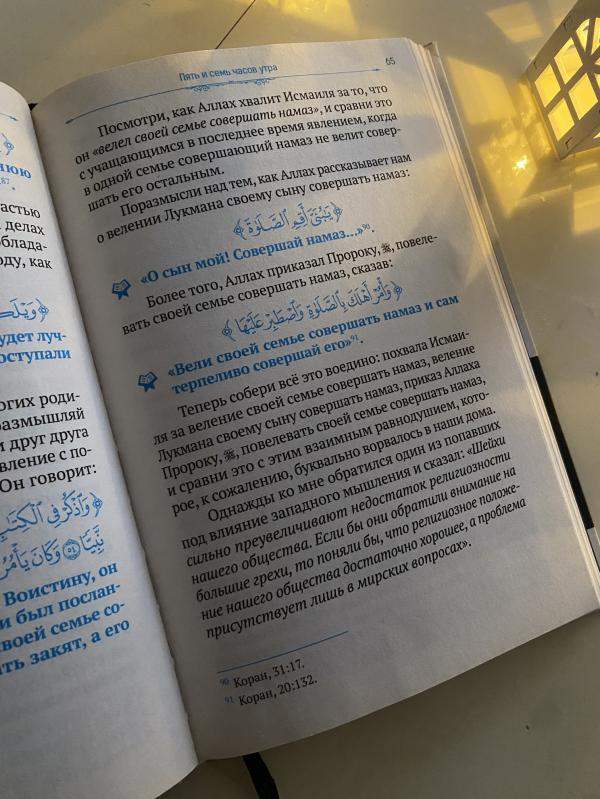 нюю
87.
астью
делах
облада-
оду, как
﴿ وَيْلَكَ
удет луч-
оступали
огих роди-
размышляй
и друг друга
вление с по-
Он говорит:
﴿ وَاذْكُرْ فِي الْكِتَ
نَّبِيًّا ﴿٥٤﴾ وَكَانَ يَأْمُرُ
Воистину, он
и был послан-
своей семье со-
ать закят, а его
Пять и семь часов утра
65
Посмотри, как Аллах хвалит Исмаиля за то, что
он «велел своей семье совершать намаз», и сравни это
с учащающимся в последнее время явлением, когда
в одной семье совершающий намаз не велит совер-
шать его остальным.
Поразмысли над тем, как Аллах рассказывает нам
о велении Лукмана своему сыну совершать намаз:
﴿ يَبُنَيَّ أَقِمِ الصَّلَوٰةَ ﴾
«О сын мой! Совершай намаз...»90.
Более того, Аллах приказал Пророку, ﷺ, повеле-
вать своей семье совершать намаз, сказав:
﴿ وَأْمُرْ أَهْلَكَ بِالصَّلَوٰةِ وَاصْطَبِرْ عَلَيْهَا ﴾
«Вели своей семье совершать намаз и сам
терпеливо совершай его»91.
Теперь собери всё это воедино: похвала Исмаи-
ля за веление своей семье совершать намаз, веление
Лукмана своему сыну совершать намаз, приказ Аллаха
Пророку, ﷺ, повелевать своей семье совершать намаз,
и сравни это с этим взаимным равнодушием, кото-
рое, к сожалению, буквально ворвалось в наши дома.
Однажды ко мне обратился один из попавших
под влияние западного мышления и сказал: «Шейхи
сильно преувеличивают недостаток религиозности
нашего общества. Если бы они обратили внимание на
большие грехи, то поняли бы, что религиозное положе-
ние нашего общества достаточно хорошее, а проблема
присутствует лишь в мирских вопросах».
90 Коран, 31:17.
91 Коран, 20:132.